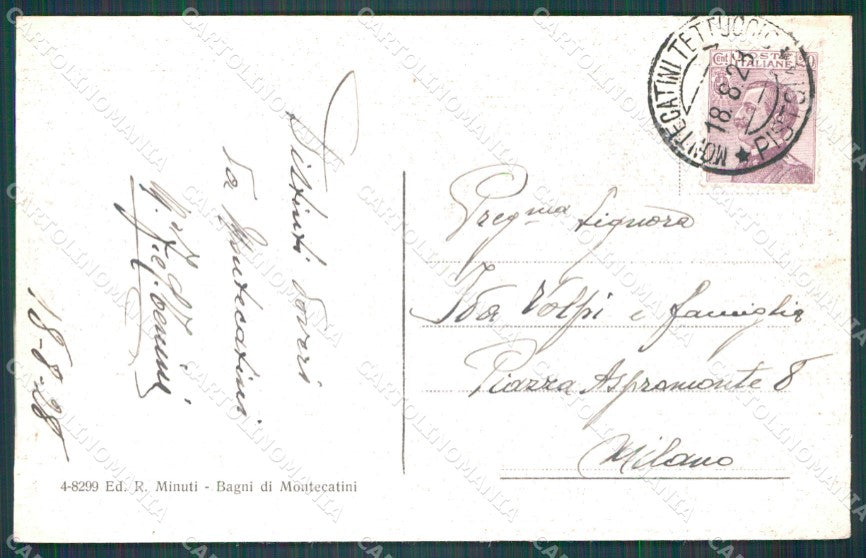 Distinti doveri
da Montecatini
18-8-28
4-8299 Ed. R. Minuti - Bagni di Montecatini
MONTECATINI TETTUCCIO
18.8.28
POSTE
ITALIANE
Cent. 20
Pregma Signora
Ida Volpi e famiglia
Piazza Aspromonte 8
Milano
CARTOLINOMANIA